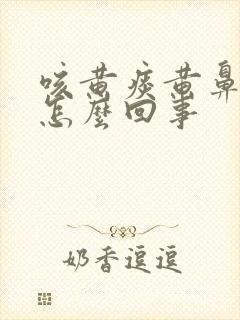 咳黄痰黄鼻
怎麼回事
奶香逗逗